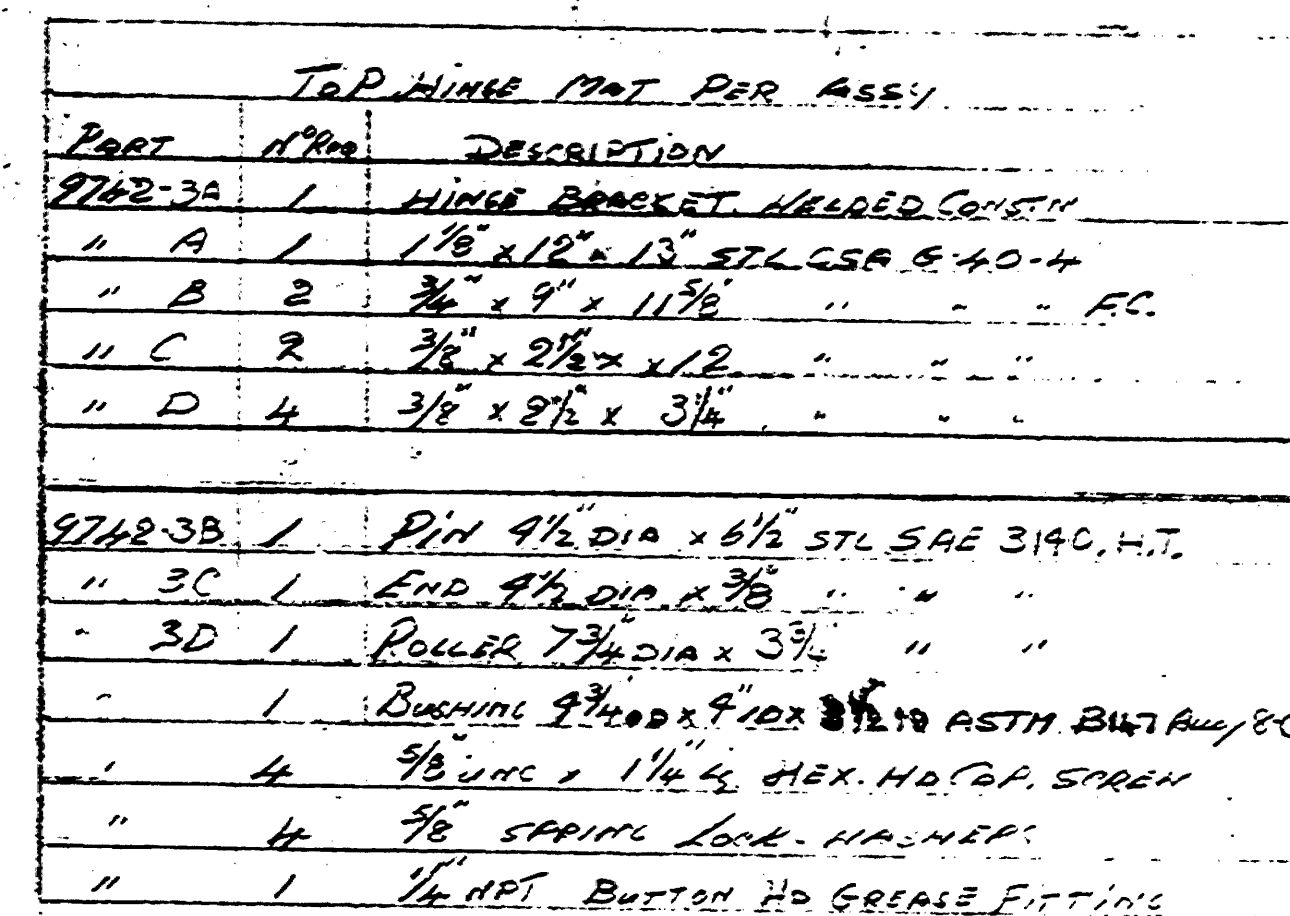 TOP HINGE MAT PER ASSY
PART Nº REQ DESCRIPTION
9742-3A 1 HINGE BRACKET. WELDED CONSTN
" A 1 1 1/8" x 12" x 13" STL CSA G-40-4
" B 2 3/4" x 9" x 11 5/8" " " " F.C.
" C 2 3/8" x 2 1/2" x x 12 " " "
" D 4 3/8" x 2 1/2" x 3 1/4" " " "
9742-3B 1 PIN 4 1/2" DIA x 6 1/2" STL SAE 3140. H.T.
" 3C 1 END 4 1/2 DIA x 3/8" " " "
" 3D 1 ROLLER 7 3/4" DIA x 3 3/4 " "
" 1 BUSHING 4 3/4 OD x 4" ID x ASTM B147
" 4 5/8" UNC x 1 1/4" LG HEX. HD CAP. SCREW
" 4 5/8" SPRING LOCK-WASHERS
" 1 1/4" NPT BUTTON HD GREASE FITTING